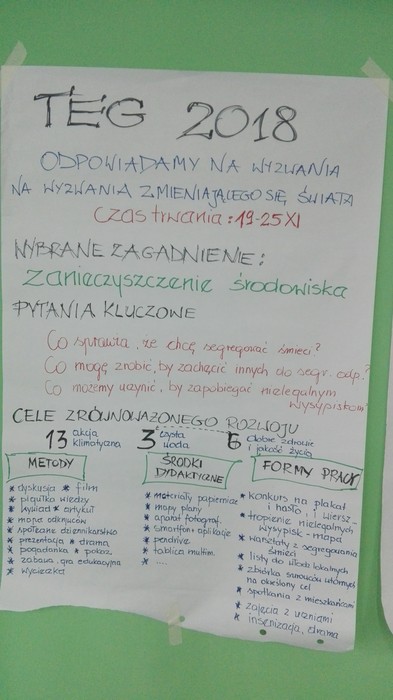 TEG 2018
ODPOWIADAMY NA WYZWANIA
NA WYZWANIA ZMIENIAJĄCEGO SIĘ ŚWIATA
Czas trwania: 19-25 XI
WYBRANE ZAGADNIENIE:
Zanieczyszczenie środowiska
PYTANIA KLUCZOWE
Co sprawia, że chcę segregować śmieci?
Co mogę zrobić, by zachęcić innych do segr. odp.?
Co możemy uczynić, by zapobiegać nielegalnym
wysypiskom
CELE ZRÓWNOWAŻONEGO ROZWOJU
13 akcja klimatyczna 3 czysta woda 6 dobre zdrowie i jakość życia
METODY
* dyskusja * film
* pigułka wiedzy
* wywiad * artykuł
* mapa odkrywców
* społeczne dziennikarstwo
* prezentacja * drama
* pogadanka * pokaz
* zabawa, gra edukacyjna
* wycieczka
ŚRODKI
DYDAKTYCZNE
* materiały papiernicze
* mapy plany
* aparat fotograf.
* smartfon + aplikacje
* pendrive
* tablica multim.
* ....
FORMY PRACY
* konkurs na plakat
i hasło, i wiersz
* tropienie nielegalnych
wysypisk - mapa
* warsztaty z segregowania
śmieci
* listy do władz lokalnych
* zbiórka surowców wtórnych
na określony cel
* spotkania z mieszkańcami
* zajęcia z uczniami
* inscenizacja, drama